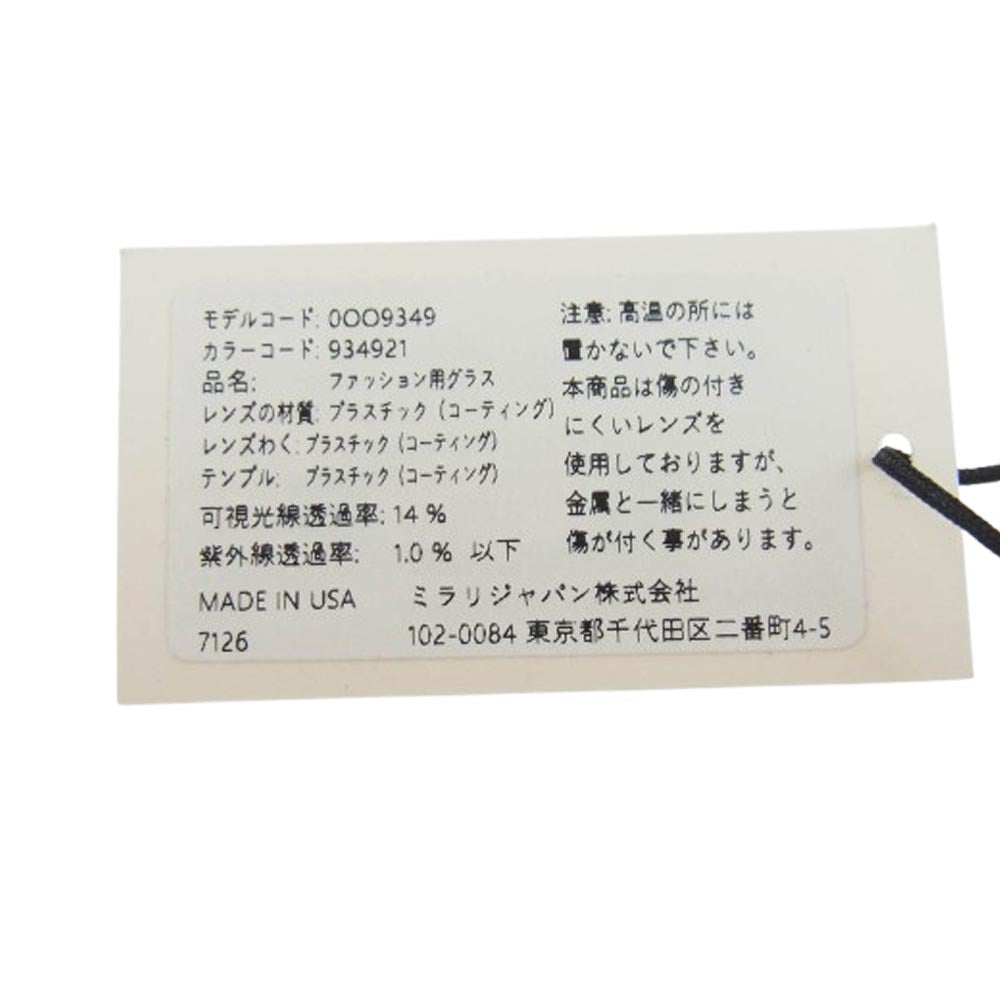 モデルコード: 0OO9349
カラーコード: 934921
品名: ファッション用グラス
レンズの材質: プラスチック (コーティング)
レンズわく: プラスチック (コーティング)
テンプル: プラスチック (コーティング)
可視光線透過率: 14 %
紫外線透過率: 1.0 % 以下
注意: 高温の所には
置かないで下さい。
本商品は傷の付き
にくいレンズを
使用しておりますが、
金属と一緒にしまうと
傷が付く事があります。
MADE IN USA ミラリジャパン株式会社
7126 102-0084 東京都千代田区二番町4-5